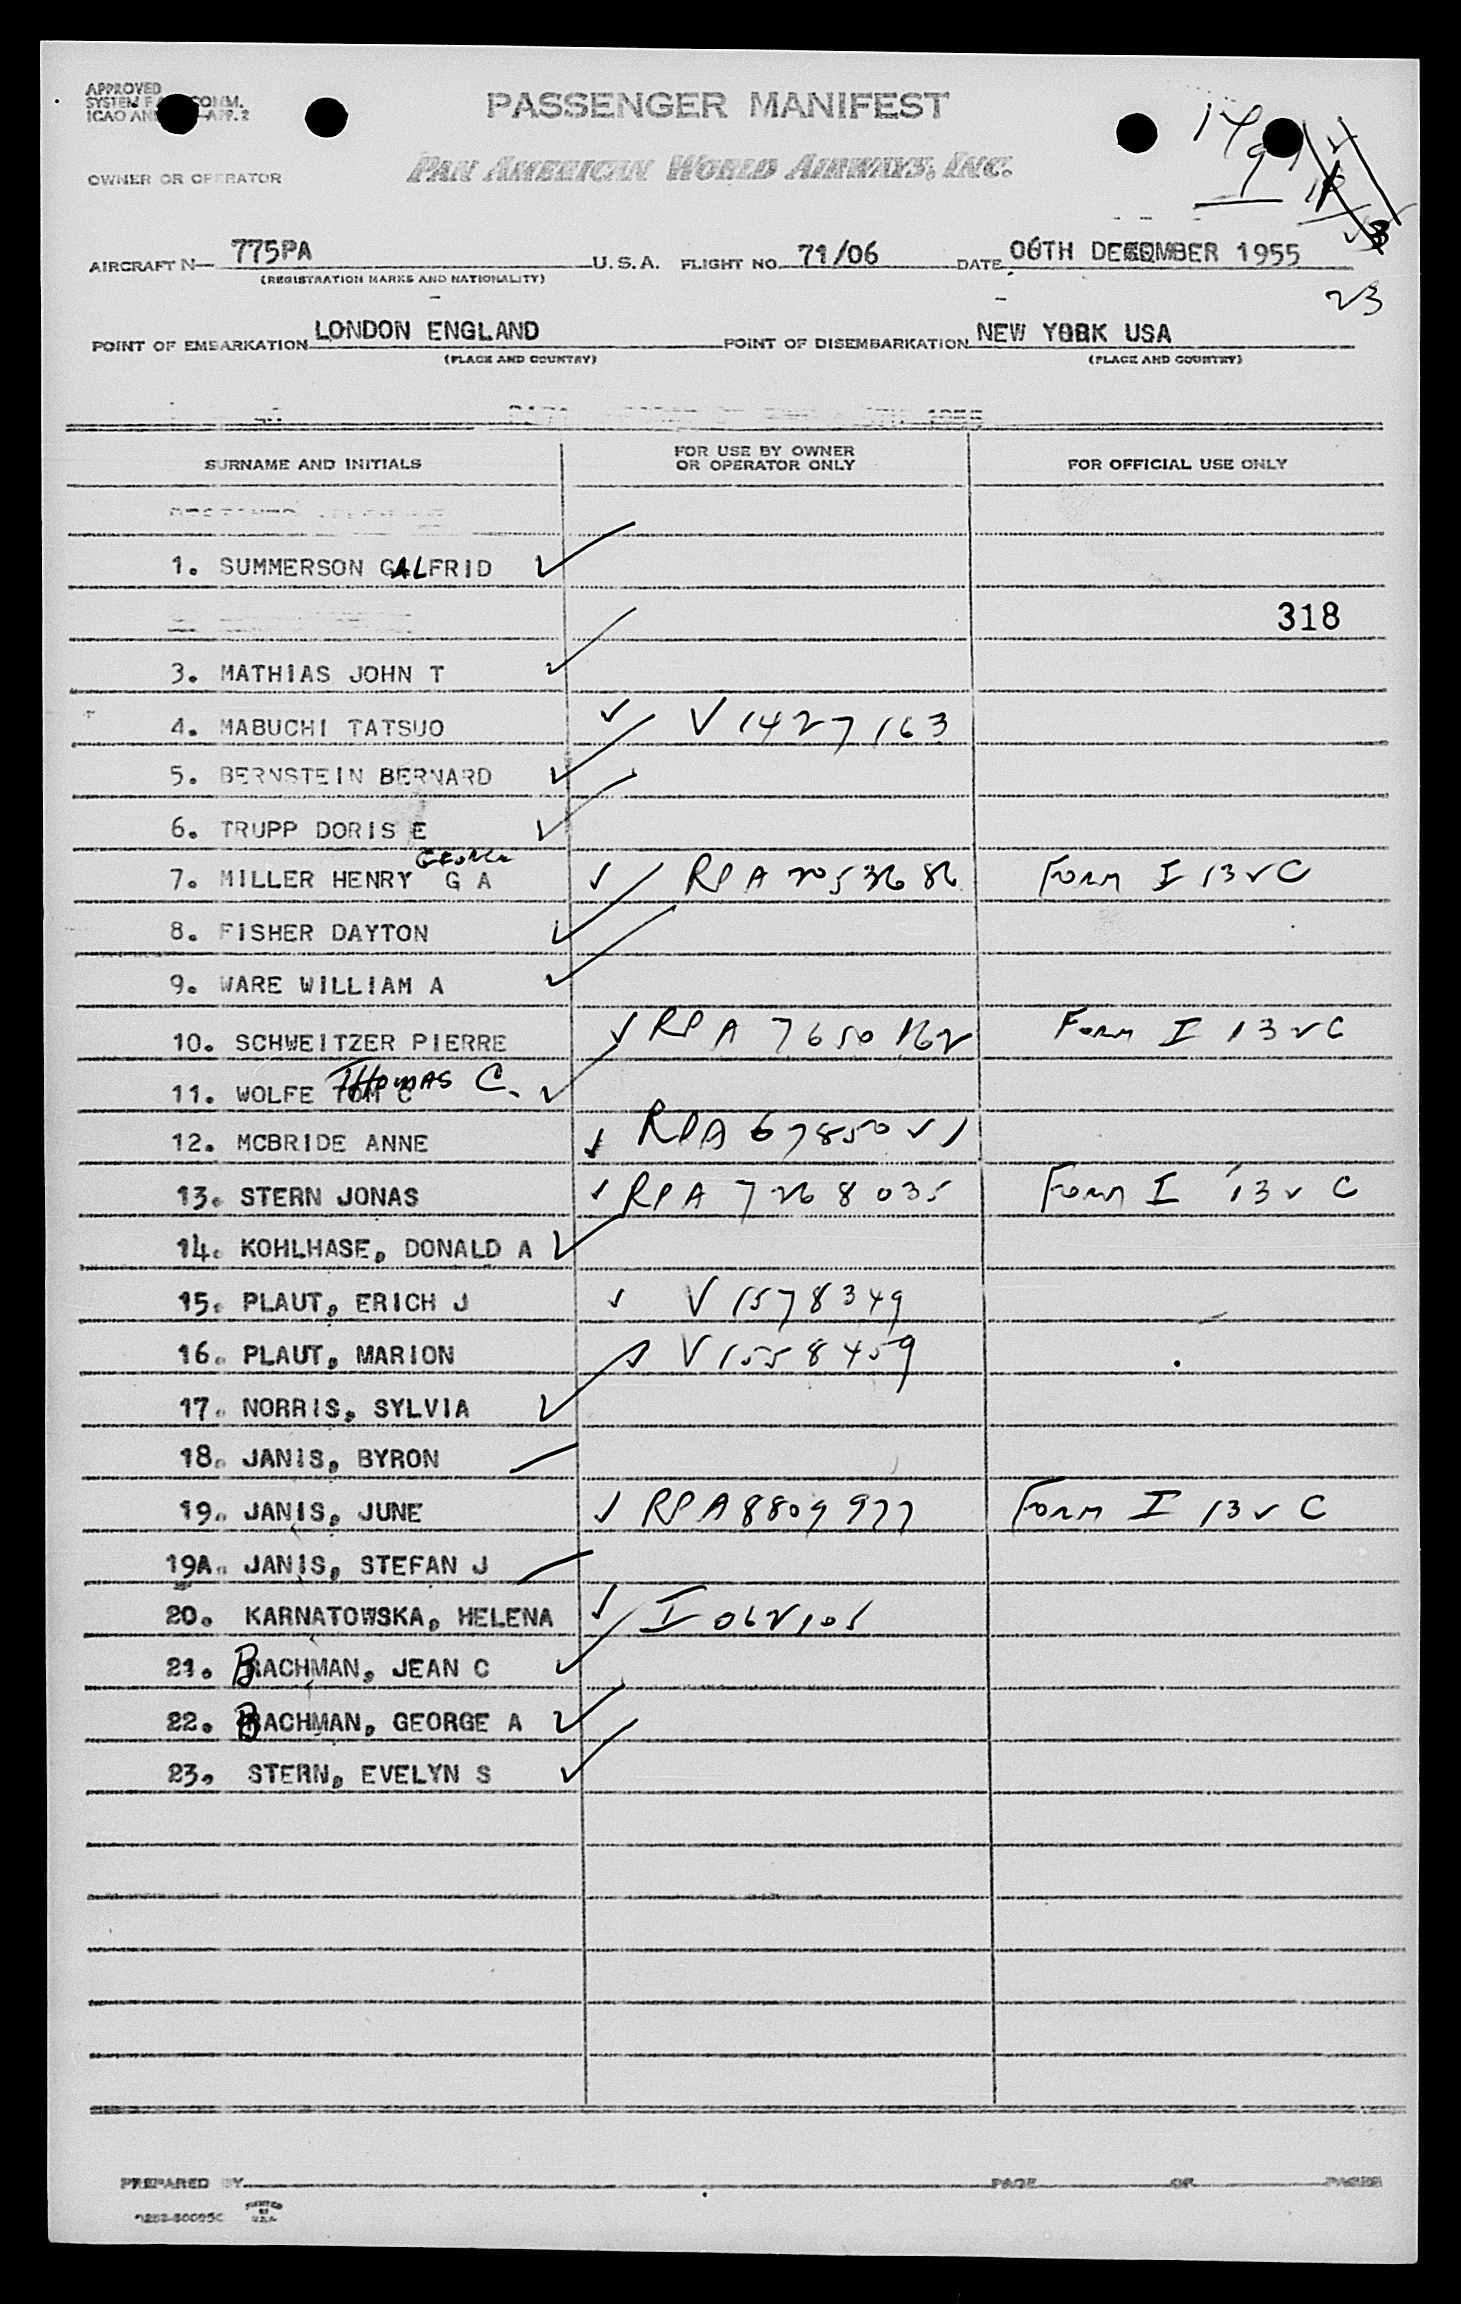 APPROVED
PASSENGER MANIFEST
PAN AMERICAN WORLD AIRWAYS, INC.
OWNER OR OPERATOR
AIRCRAFT N— 775PA U.S.A. FLIGHT NO. 71/06 DATE 06TH DECEMBER 1955
(REGISTRATION MARKS AND NATIONALITY)
23
POINT OF EMBARKATION LONDON ENGLAND POINT OF DISEMBARKATION NEW YORK USA
(PLACE AND COUNTRY) (PLACE AND COUNTRY)
SURNAME AND INITIALS FOR USE BY OWNER OR OPERATOR ONLY FOR OFFICIAL USE ONLY
1. SUMMERSON GALFRID
318
3. MATHIAS JOHN T
4. MABUCHI TATSUO V 1427163
5. BERNSTEIN BERNARD
6. TRUPP DORIS E
GEORGE
7. MILLER HENRY G A RPA Form I 132 C
8. FISHER DAYTON
9. WARE WILLIAM A
10. SCHWEITZER PIERRE RPA 7650162 Form I 132 C
THOMAS C.
11. WOLFE TOM C
12. MCBRIDE ANNE RPA 6785021
13. STERN JONAS RPA 7268035 Form I 132 C
14. KOHLHASE, DONALD A
15. PLAUT, ERICH J V 1578349
16. PLAUT, MARION V 1558459
17. NORRIS, SYLVIA
18. JANIS, BYRON
19. JANIS, JUNE RPA 8809977 Form I 132 C
19A. JANIS, STEFAN J
20. KARNATOWSKA, HELENA I 062105
21. BACHMAN, JEAN C
22. BACHMAN, GEORGE A
23. STERN, EVELYN S
PREPARED BY PAGE OF PAGES
PRINTED IN U.S.A.